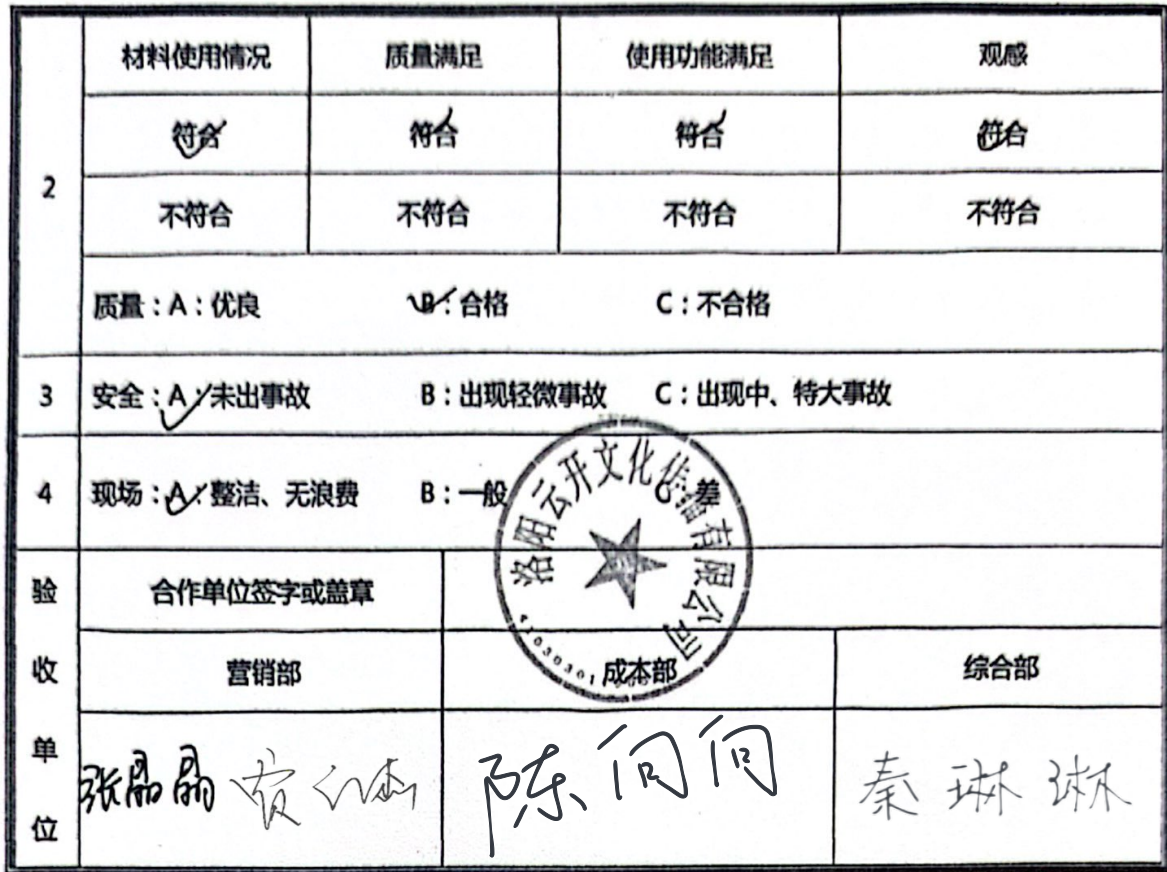 材料使用情况 质量满足 使用功能满足 观感
符合 符合 符合 符合
2
不符合 不符合 不符合 不符合
质量：A：优良 B：合格 C：不合格
3 安全：A：未出事故 B：出现轻微事故 C：出现中、特大事故
4 现场：A：整洁、无浪费 B：一般 C：差
洛阳云开文化传播有限公司
验收单位
合作单位签字或盖章
营销部 成本部 综合部
张晶晶 陈向向 秦琳琳